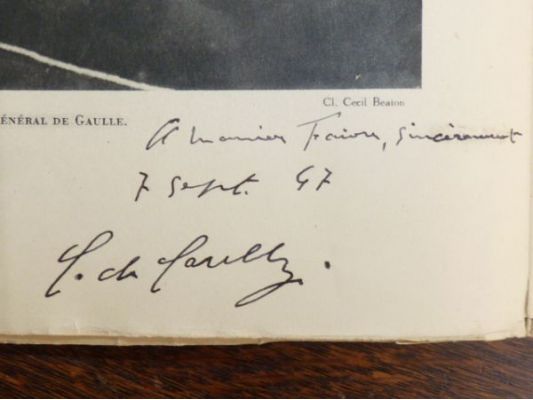 Cl. Cecil Beaton
ÉNÉRAL DE GAULLE.
A Monsieur , sincèrement
7 sept. 47
C. de Gaulle.